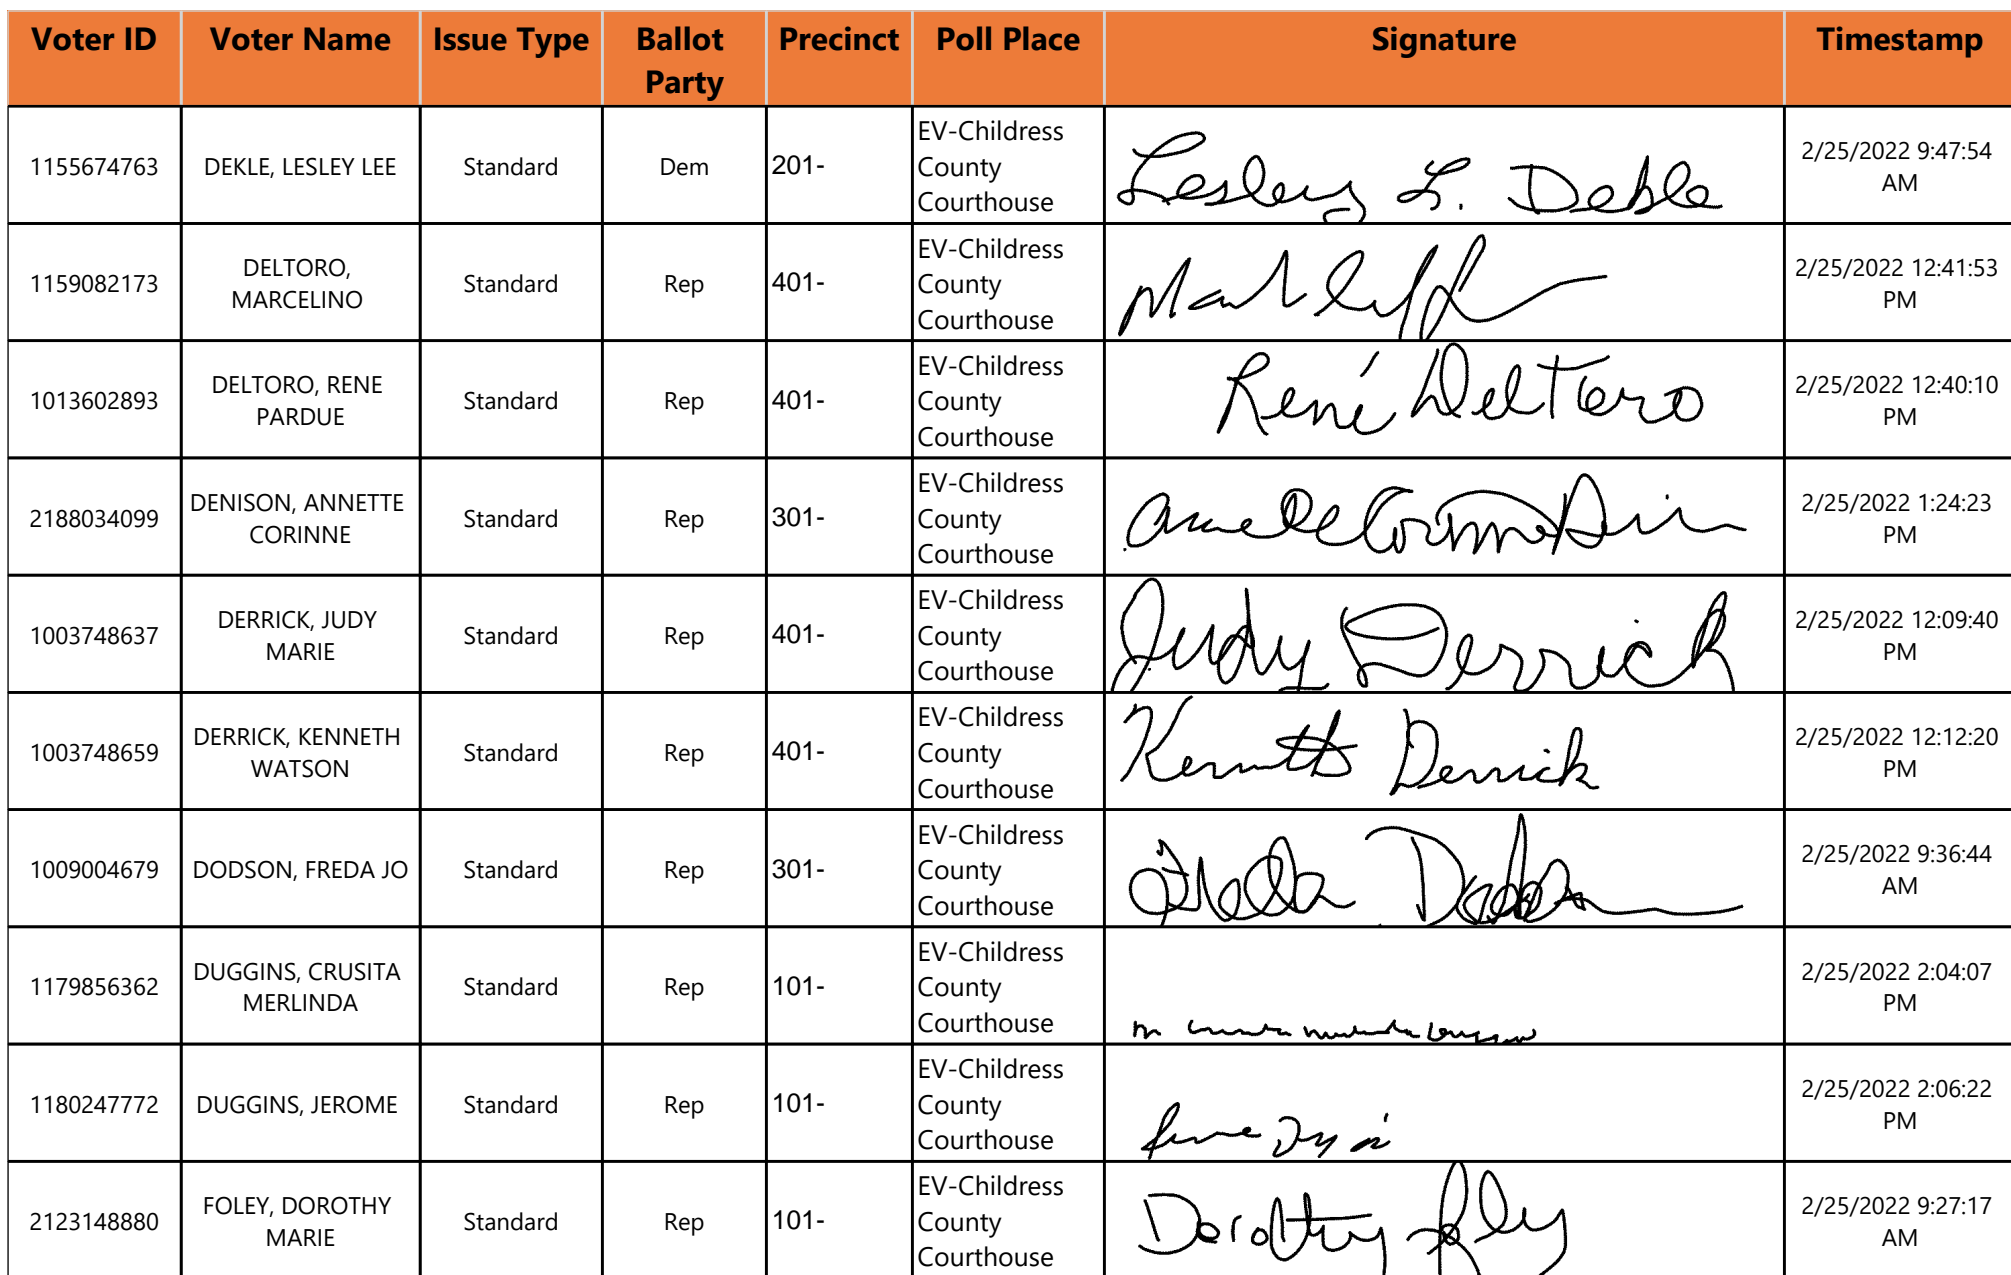 Voter ID Voter Name Issue Type Ballot Party Precinct Poll Place Signature Timestamp
1155674763 DEKLE, LESLEY LEE Standard Dem 201- EV-Childress County Courthouse Lesley L. Dekle 2/25/2022 9:47:54 AM
1159082173 DELTORO, MARCELINO Standard Rep 401- EV-Childress County Courthouse 2/25/2022 12:41:53 PM
1013602893 DELTORO, RENE PARDUE Standard Rep 401- EV-Childress County Courthouse René DelToro 2/25/2022 12:40:10 PM
2188034099 DENISON, ANNETTE CORINNE Standard Rep 301- EV-Childress County Courthouse 2/25/2022 1:24:23 PM
1003748637 DERRICK, JUDY MARIE Standard Rep 401- EV-Childress County Courthouse Judy Derrick 2/25/2022 12:09:40 PM
1003748659 DERRICK, KENNETH WATSON Standard Rep 401- EV-Childress County Courthouse Kenneth Derrick 2/25/2022 12:12:20 PM
1009004679 DODSON, FREDA JO Standard Rep 301- EV-Childress County Courthouse 2/25/2022 9:36:44 AM
1179856362 DUGGINS, CRUSITA MERLINDA Standard Rep 101- EV-Childress County Courthouse 2/25/2022 2:04:07 PM
1180247772 DUGGINS, JEROME Standard Rep 101- EV-Childress County Courthouse 2/25/2022 2:06:22 PM
2123148880 FOLEY, DOROTHY MARIE Standard Rep 101- EV-Childress County Courthouse Dorothy Foley 2/25/2022 9:27:17 AM